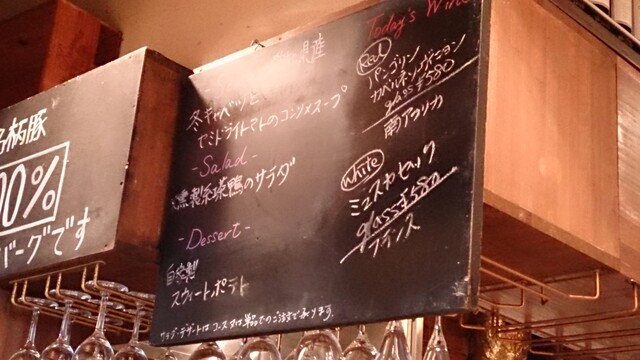 柄豚
00%
バーグです
県産
冬キャベツと
セミドライトマトのコンソメスープ
-Salad-
燻製糸球鴨のサラダ
-Dessert-
自家製
スウィートポテト
サラダ・デザートはコース又は単品でのご注文で承ります。
Today's Wine
Red
パングリン
カベルネソーヴィニヨン
glass ¥580
南アフリカ
White
ミュスカセック
glass ¥580
フランス